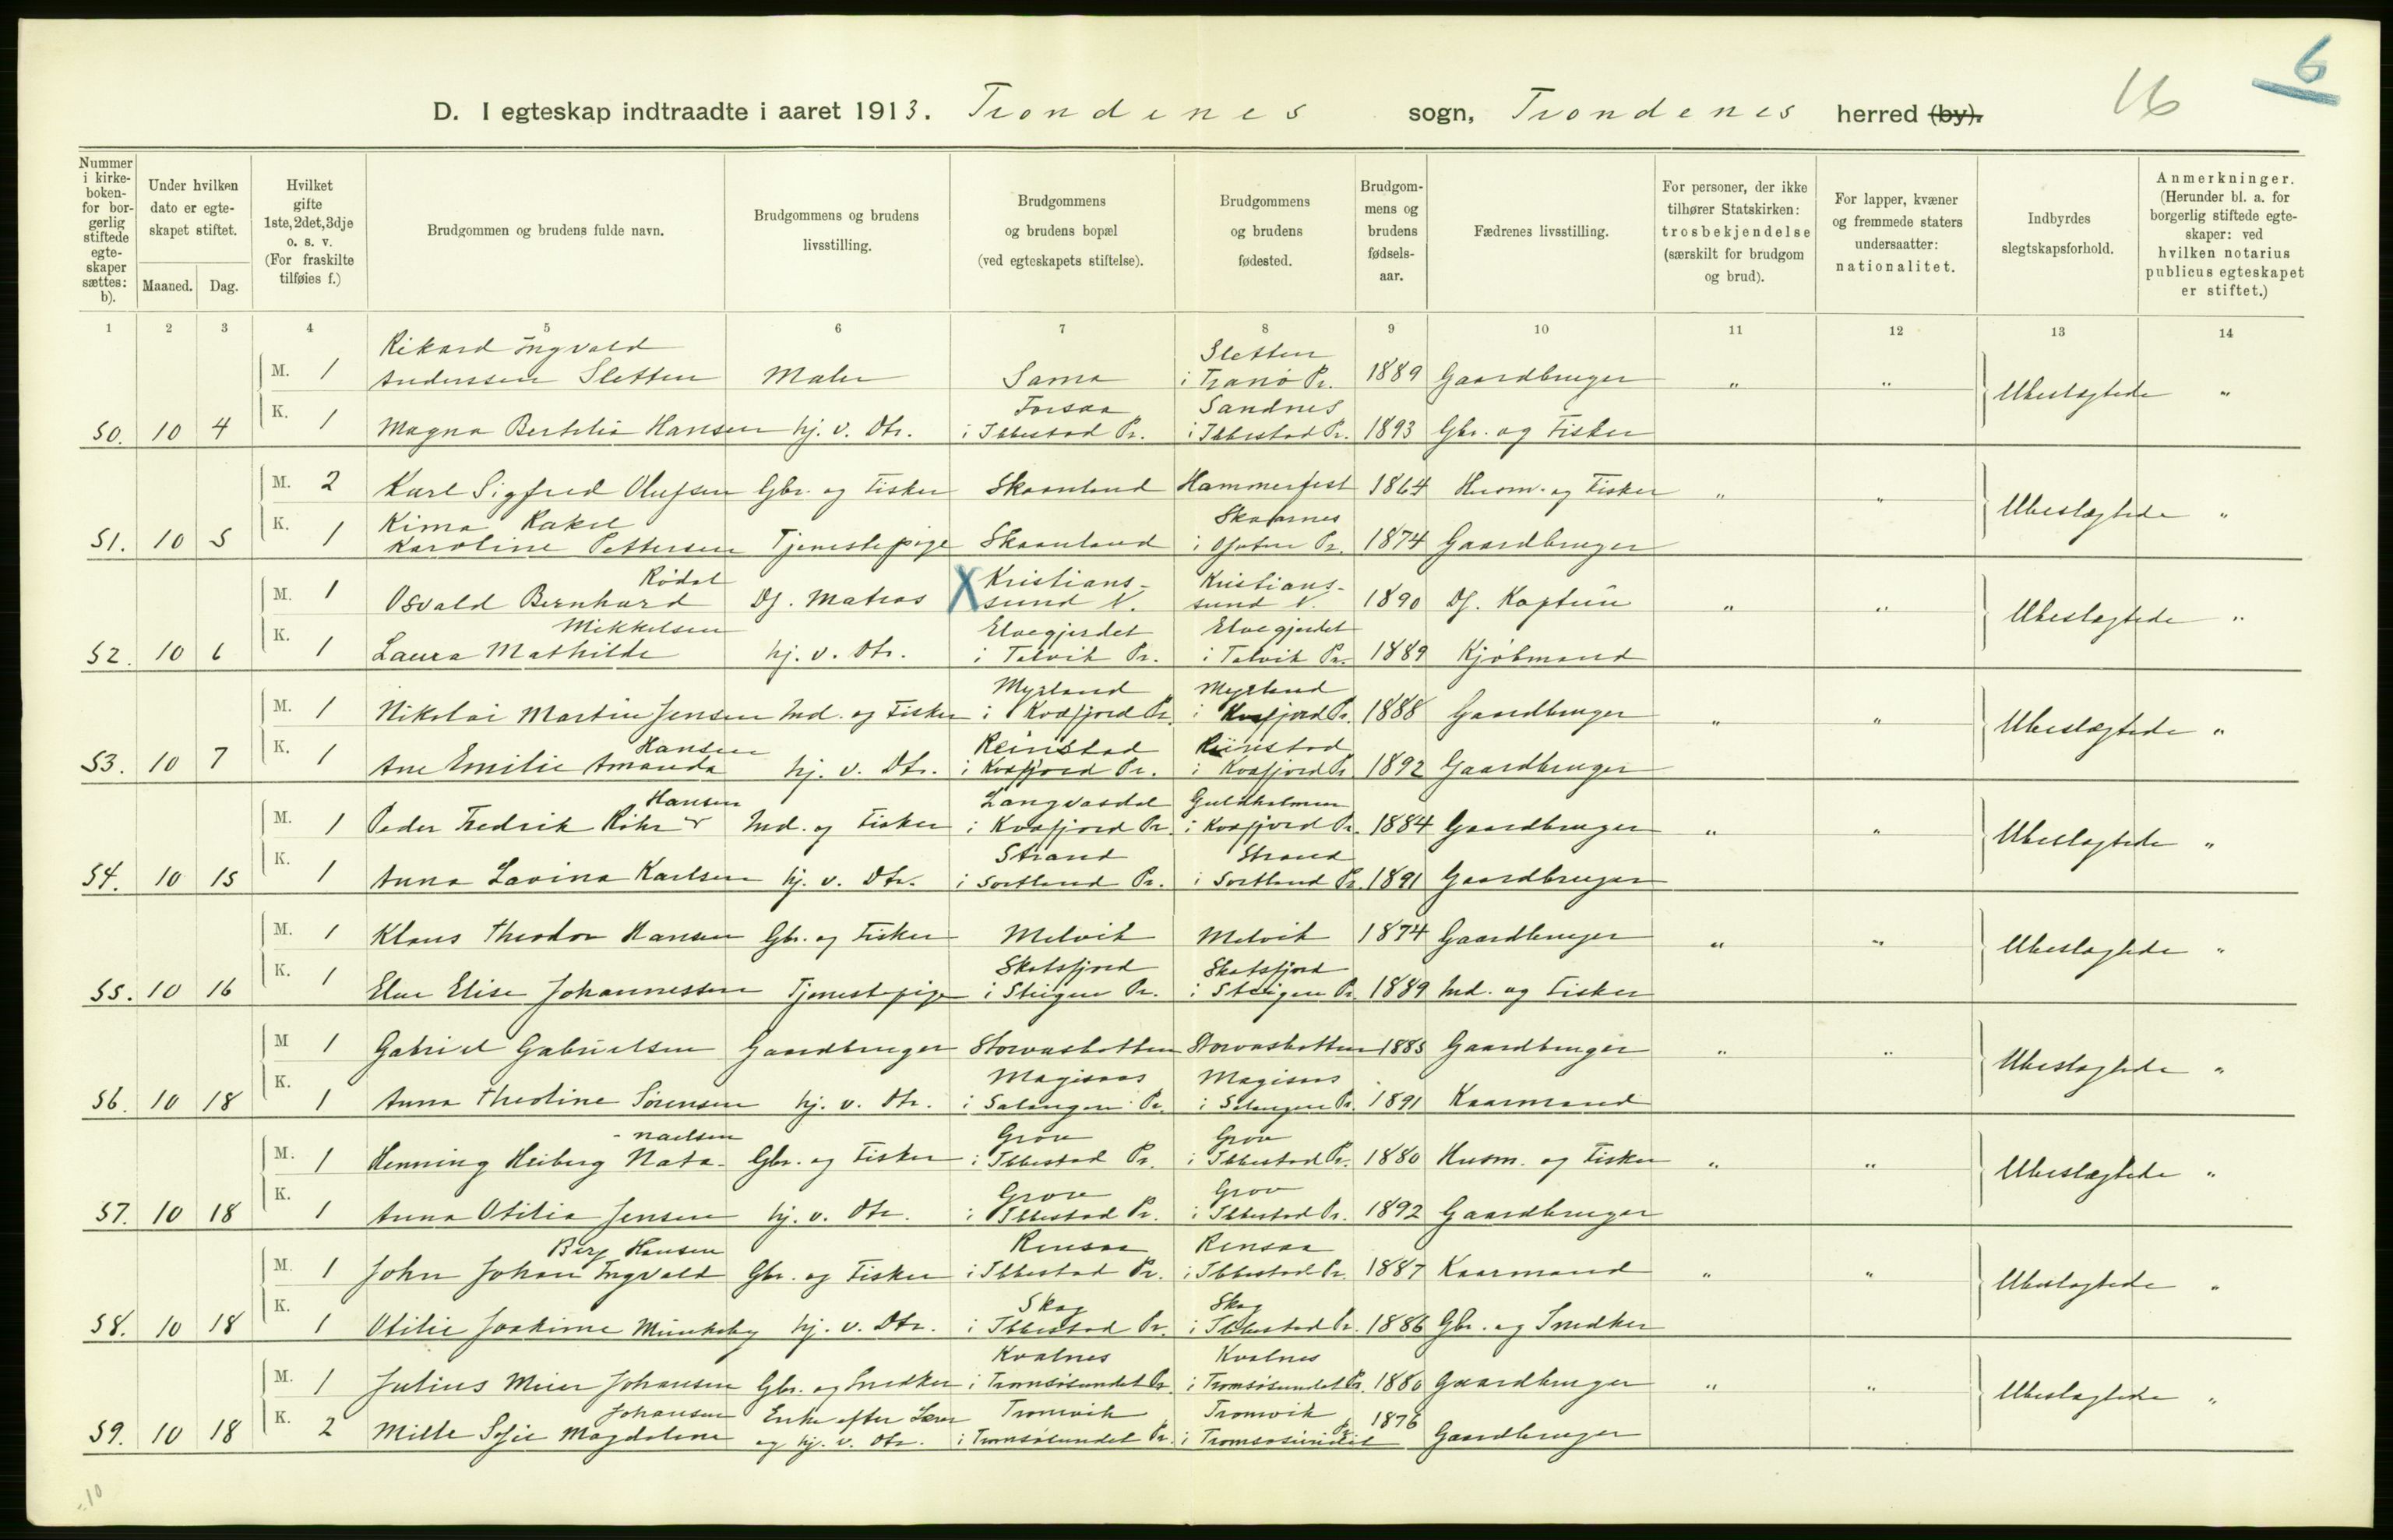 6
16
D. I egteskap indtraadte i aaret 1913. Trondenes sogn, Trondenes herred (by).
Nummer i kirkeboken- for borgerlig stiftede egteskaper sættes: b).
Under hvilken dato er egteskapet stiftet.
Maaned. Dag.
Hvilket gifte 1ste, 2det, 3dje o. s. v. (For fraskilte tilføies f.)
Brudgommen og brudens fulde navn.
Brudgommens og brudens livsstilling.
Brudgommens og brudens bopæl (ved egteskapets stiftelse).
Brudgommens og brudens fødested.
Brudgommens og brudens fødselsaar.
Fædrenes livsstilling.
For personer, der ikke tilhører Statskirken: trosbekjendelse (særskilt for brudgom og brud).
For lapper, kvæner og fremmede staters undersaatter: nationalitet.
Indbyrdes slegtskapsforhold.
Anmerkninger. (Herunder bl. a. for borgerlig stiftede egteskaper: ved hvilken notarius publicus egteskapet er stiftet.)
1 2 3 4 5 6 7 8 9 10 11 12 13 14
M. 1 Rikard Ingvald Anderssen Sletten Maler Sama Sletten i Tranø Pr. 1889 Gaardbruger " " Ubeslægtede "
50. 10 4 K. 1 Magna Berthelia Hansen hj. v. Dtr. Forsaa i Ibbestad Pr. Sandnes i Ibbestad Pr. 1893 Gbr. og Fisker
M. 2 Karl Sigfred Olufsen Gbr. og Fisker Skaanland Hammerfest 1864 Husm. og Fisker " " Ubeslægtede "
51. 10 5 K. 1 Kima Rakel Karoline Pettersen Tjenestepige Skaanland Skaarnes i Ofoten Pr. 1874 Gaardbruger
M. 1 Osvald Bernhard Rødal Df. Matros X Kristianssund N. Kristianssund N. 1890 Df. Kaptein " " Ubeslægtede "
52. 10 6 K. 1 Laura Mathilde Mikkelsen hj. v. Dtr. Elvegjerdet i Talvik Pr. Elvegjerdet i Talvik Pr. 1889 Kjøbmand
M. 1 Nikolai Martin Jensen Ind. og Fisker Myrland i Kvæfjord Pr. Myrland i Kvæfjord Pr. 1888 Gaardbruger " " Ubeslægtede "
53. 10 7 K. 1 Ane Emilie Amanda Hansen hj. v. Dtr. Reinstad i Kvæfjord Pr. Reinstad i Kvæfjord Pr. 1892 Gaardbruger
M. 1 Peder Fredrik Røhr Hansen Ind. og Fisker Langvasdal i Kvæfjord Pr. Guldholmen i Kvæfjord Pr. 1884 Gaardbruger " " Ubeslægtede "
54. 10 15 K. 1 Anna Lovina Karlsen hj. v. Dtr. Strand i Sortland Pr. Strand i Sortland Pr. 1891 Gaardbruger
M. 1 Klaus Theodor Hansen Gbr. og Fisker Melvik Melvik 1874 Gaardbruger " " Ubeslægtede "
55. 10 16 K. 1 Elen Elise Johannessen Tjenestepige Skotsfjord i Steigen Pr. Skotsfjord i Steigen Pr. 1889 Ind. og Fisker
M 1 Gabriel Gabrielsen Gaardbruger Storvasbotten Storvasbotten 1885 Gaardbruger " " Ubeslægtede "
56. 10 18 K. 1 Anna Theoline Sørensen hj. v. Dtr. Magisaas i Salangen Pr. Magisaas i Salangen Pr. 1891 Kaarmand
M. 1 Henning Heiberg Nata-naelsen Gbr. og Fisker Grov i Ibbestad Pr. Grov i Ibbestad Pr. 1880 Husm. og Fisker " " Ubeslægtede "
57. 10 18 K. 1 Anna Otilia Jensen hj. v. Dtr. Grov i Ibbestad Pr. Grov i Ibbestad Pr. 1892 Gaardbruger
M. 1 John Johan Ingvald Berg Hansen Gbr. og Fisker Rensaa i Ibbestad Pr. Rensaa i Ibbestad Pr. 1887 Kaarmand " " Ubeslægtede "
58. 10 18 K. 1 Otilie Joakime Munkeby hj. v. Dtr. Skog i Ibbestad Pr. Skog i Ibbestad Pr. 1886 Gbr. og Snedker
M. 1 Julius Meier Johansen Gbr. og Snedker Kvalnes i Tromsøsundet Pr. Kvalnes i Tromsøsundet Pr. 1880 Gaardbruger " " Ubeslægtede "
59. 10 18 K. 2 Mille Sofie Magdalene Johansen Enke efter Lærer og hj. v. Dtr. Tromvik i Tromsøsundet Pr. Tromvik i Tromsøsundet Pr. 1876 Gaardbruger
10